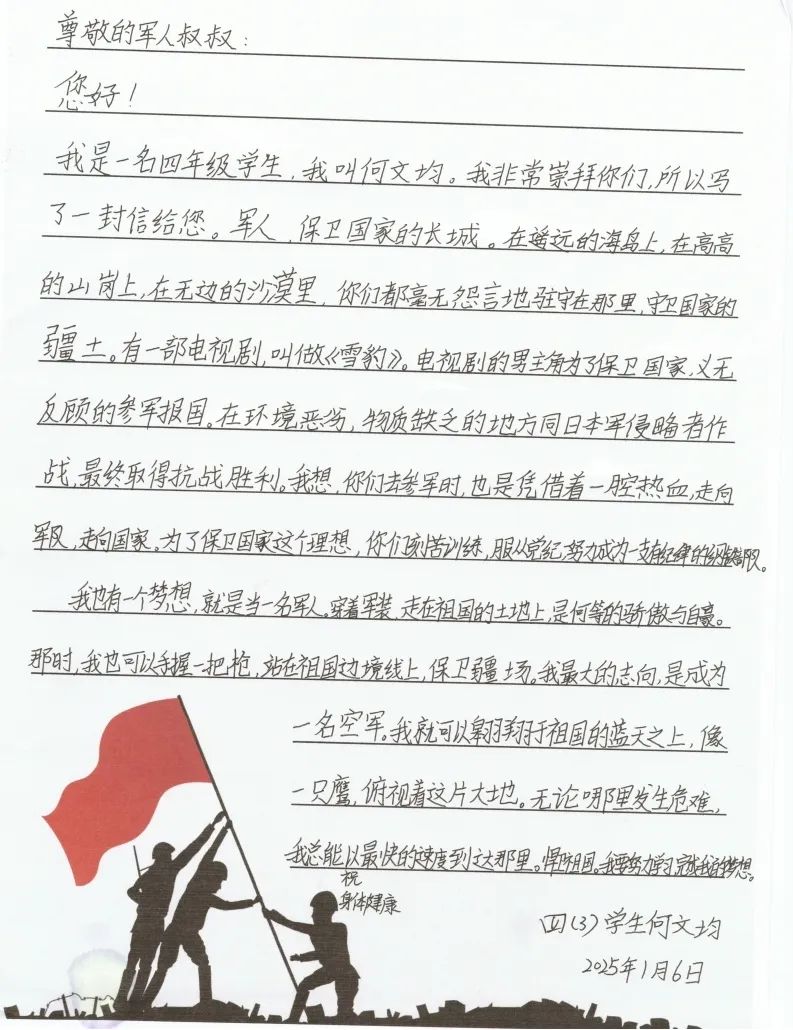 尊敬的军人叔叔：
您好！
我是一名四年级学生，我叫何文均。我非常崇拜你们，所以写
了一封信给您。军人，保卫国家的长城。在遥远的海岛上，在高高
的山岗上，在无边的沙漠里，你们都毫无怨言地驻守在那里，守卫国家的
疆土。有一部电视剧，叫做《雪豹》。电视剧的男主角为了保卫国家，义无
反顾的参军报国。在环境恶劣，物质缺乏的地方同日本军侵略者作
战，最终取得抗战胜利。我想，你们去参军时，也是凭借着一腔热血，走向
军队，走向国家。为了保卫国家这个理想，你们刻苦训练，服从党纪，努力成为一支有纪律的部队。
我也有一个梦想，就是当一名军人。穿着军装，走在祖国的土地上，是何等的骄傲与自豪。
那时，我也可以手握一把枪，站在祖国边境线上，保卫疆场。我最大的志向，是成为
一名空军。我就可以翱翔于祖国的蓝天之上，像
一只鹰，俯视着这片大地。无论哪里发生危难，
我总能以最快的速度到达那里。捍卫祖国。我要努力学习，完成我的梦想。
祝
身体健康
四(3)学生何文均
2025年1月6日